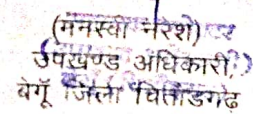 (मनस्वी नरेश)
उपखण्ड अधिकारी,
बेगूँ जिला चितौडगढ़